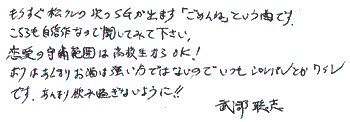 もうすぐ松クンの次のSGが出ます「ごめんね」という曲です。
こちらも自信作なので聞いてみて下さい。
恋愛の守備範囲は高校生からOK!
ボクはあんまりお酒は強い方ではないのでいつもシャンパンとかワイン
です。あんまり飲み過ぎないように!!
武部聡志